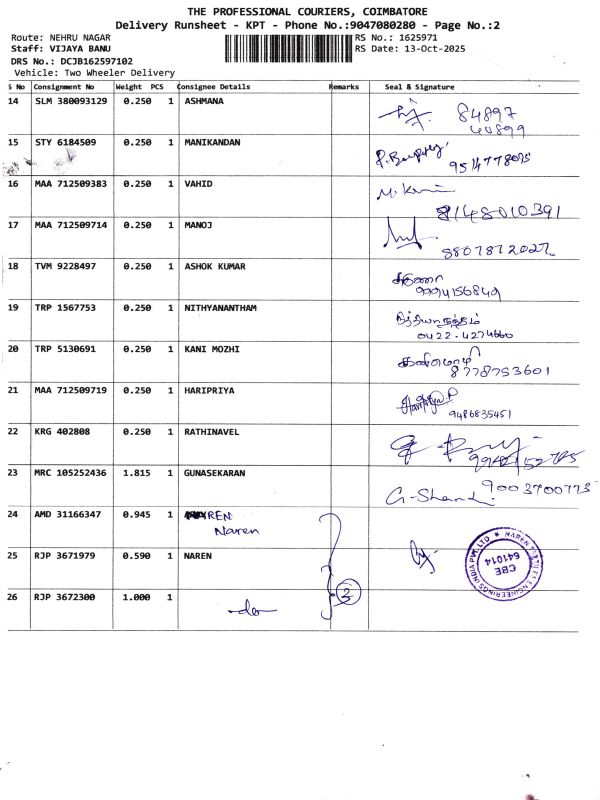 THE PROFESSIONAL COURIERS, COIMBATORE
Delivery Runsheet - KPT - Phone No.:9047080280 - Page No.:2
Route: NEHRU NAGAR RS No.: 1625971
Staff: VIJAYA BANU RS Date: 13-Oct-2025
DRS No.: DCJB162597102
Vehicle: Two Wheeler Delivery
S No Consignment No Weight PCS Consignee Details Remarks Seal & Signature
14 SLM 380093129 0.250 1 ASHMANA 84897
40899
15 STY 6184509 0.250 1 MANIKANDAN
9514778075
16 MAA 712509383 0.250 1 VAHID
8148010391
17 MAA 712509714 0.250 1 MANOJ
8807872027
18 TVM 9228497 0.250 1 ASHOK KUMAR
9994156849
19 TRP 1567753 0.250 1 NITHYANANTHAM நித்தியானந்தம்
0422-4274660
20 TRP 5130691 0.250 1 KANI MOZHI கனிமொழி
8778753601
21 MAA 712509719 0.250 1 HARIPRIYA Haripriya.P
9486835451
22 KRG 402808 0.250 1 RATHINAVEL
23 MRC 105252436 1.815 1 GUNASEKARAN 9003700773
24 AMD 31166347 0.945 1 NAREN
Naren
25 RJP 3671979 0.590 1 NAREN
26 RJP 3672300 1.000 1 -do- 3
CBE
641014